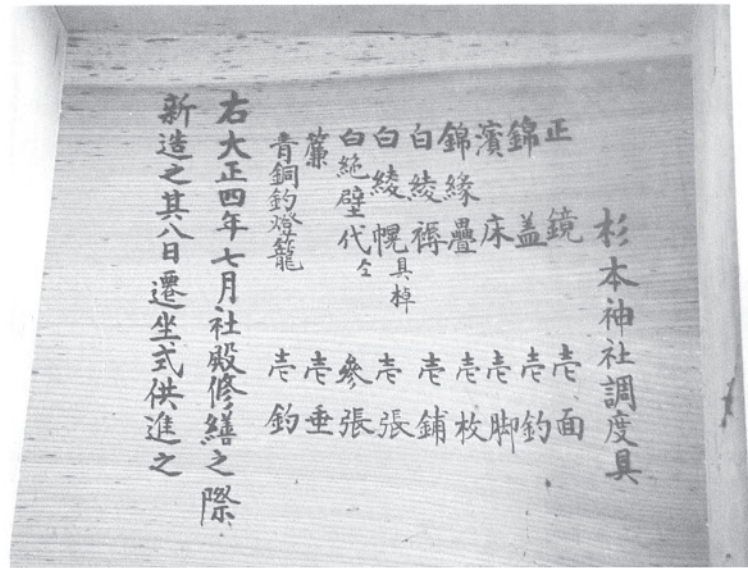 杉本神社調度具
正鏡 壱面
錦盖 壱釣
濱床 壱脚
錦緣疊 壱枚
白綾褥 壱鋪
白綾幌具棹 壱張
白絁壁代仝 參張
簾 壱垂
青銅釣燈籠 壱釣
右大正四年七月社殿修繕之際
新造之其八日遷坐式供進之